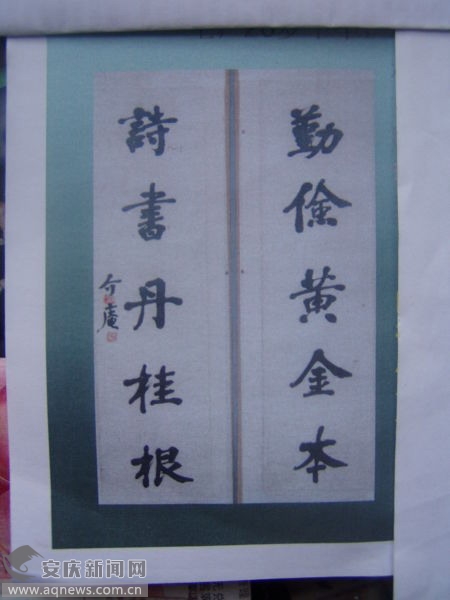 勤儉黄金本
詩書丹桂根
介庵
安庆新闻网
www.aqnews.com.cn